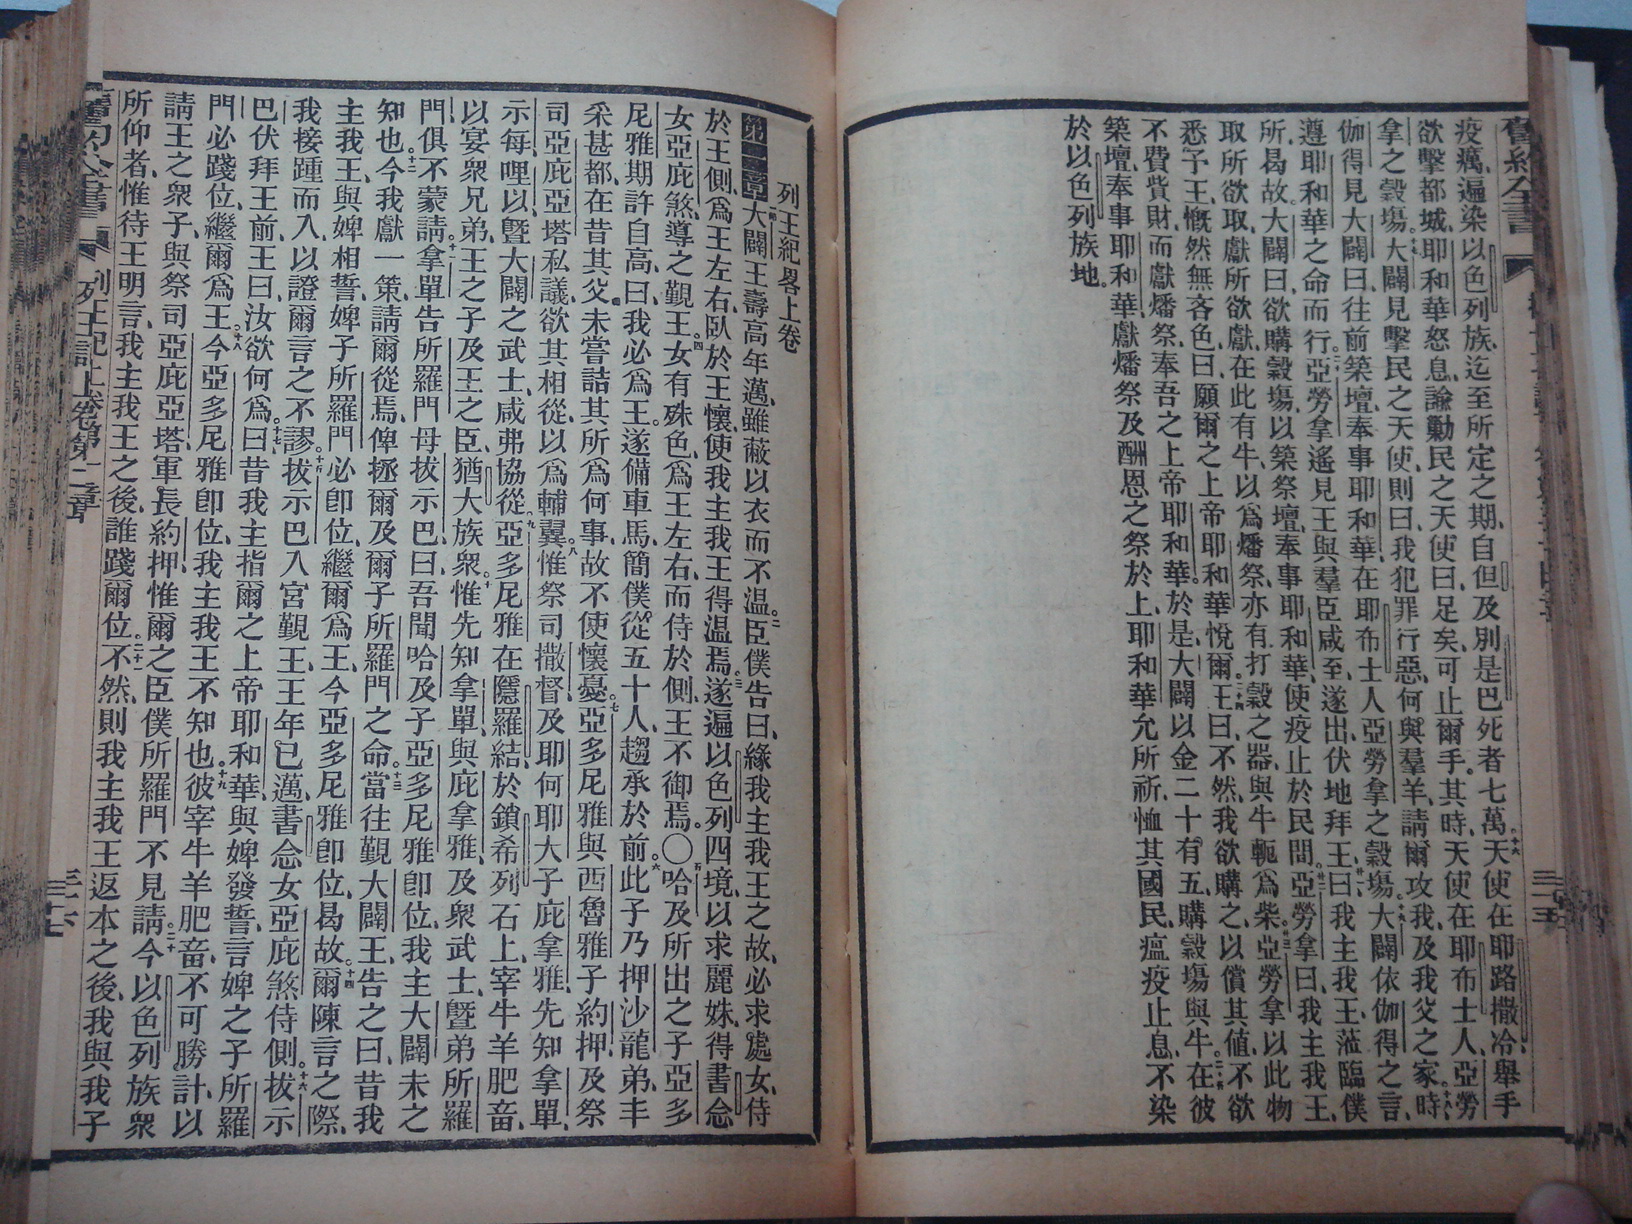 舊約全書
疫癘、遍染以色列族、迄至所定之期、自但及別是巴死者七萬。十六天使在耶路撒冷舉手
欲擊都城、耶和華怒息、諭勦民之天使曰、足矣、可止爾手。其時、天使在耶布士人、亞勞
拿之穀塲。十七大闢見擊民之天使、則曰、我犯罪行惡、何與羣羊、請爾攻我、及我父之家。時十八
伽得見大闢曰、往前築壇、奉事耶和華、在耶布士人亞勞拿之穀塲。十九大闢依伽得之言、
遵耶和華之命而行。二十亞勞拿遙見王與羣臣咸至、遂出、伏地拜王。廿一曰、我主我王、蒞臨僕
所、曷故、大闢曰、欲購穀塲、以築祭壇、奉事耶和華、使疫止於民間。廿二亞勞拿曰、我主我王、
取所欲取、獻所欲獻、在此有牛、以爲燔祭、亦有打穀之器、與牛軛爲柴。廿三亞勞拿以此物
悉予王、慨然無吝色、曰、願爾之上帝耶和華悅爾。二十四王曰、不然、我欲購之、以償其値、不欲
不費貲財、而獻燔祭、奉吾之上帝耶和華。於是大闢以金二十有五、購穀塲與牛。二十五在彼
築壇、奉事耶和華、獻燔祭、及酬恩之祭於上、耶和華允所祈、恤其國民、瘟疫止息、不染
於以色列族地。
三百五
列王紀畧上卷
第一章大闢王壽高年邁、雖蔽以衣而不温。二臣僕告曰、緣我主我王之故、必求處女、侍
於王側、爲王左右、臥於王懷、使我主我王得温焉。三遂遍以色列四境、以求麗姝、得書念
女亞庇煞、導之覲王。四女有殊色、爲王左右、而侍於側、王不御焉。〇五哈及所出之子亞多
尼雅期許自高、曰、我必爲王。遂備車馬、簡僕從五十人、趨承於前。六此子乃押沙龍弟、丰
采甚都、在昔其父未嘗詰其所爲何事、故不使懷憂。七亞多尼雅與西魯雅子約押、及祭
司亞庇亞塔私議、欲其相從、以爲輔翼。八惟祭司撒督、及耶何耶大子庇拿雅、先知拿單、
示每、哩以、曁大闢之武士、咸弗協從。九亞多尼雅在隱羅結、於鎖希列石上、宰牛羊肥畜、
以宴衆兄弟、王之子、及王之臣、猶大族衆。十惟先知拿單、與庇拿雅、及衆武士、曁弟所羅
門、俱不蒙請。十一拿單告所羅門母拔示巴曰、吾聞哈及子亞多尼雅卽位、我主大闢未之
知也。十二今我獻一策、請爾從焉、俾拯爾及爾子所羅門之命。十三當往覲大闢王、告之曰、昔我
主我王、與婢相誓、婢子所羅門必卽位、繼爾爲王、今亞多尼雅卽位、曷故。十四爾陳言之際、
我接踵而入、以證爾言之不謬。十五拔示巴入宮覲王、王年已邁、書念女亞庇煞侍側。十六拔示
巴伏拜王前、王曰、汝欲何爲。十七曰、昔我主指爾之上帝耶和華、與婢發誓、言婢之子所羅
門必踐位、繼爾爲王。十八今亞多尼雅卽位、我主我王不知也。十九彼宰牛羊肥畜、不可勝計、以
請王之衆子、與祭司亞庇亞塔、軍長約押、惟爾之臣僕所羅門不見請。二十今以色列族衆
所仰者、惟待王明言、我主我王之後、誰踐爾位。二十一不然、則我主我王返本之後、我與我子
舊約全書
列王紀畧上卷第一章